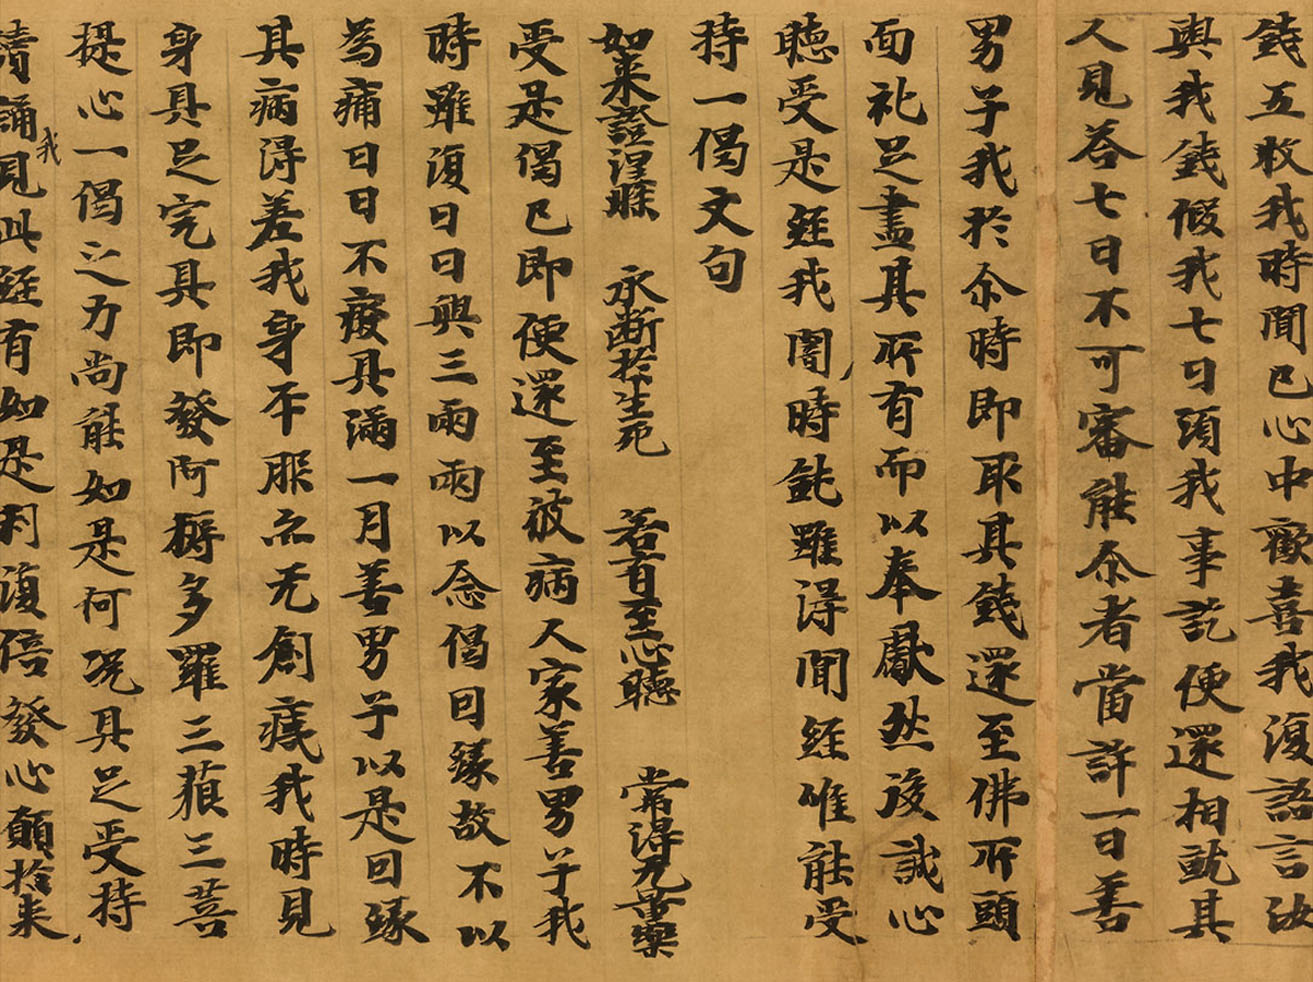 錢五枚我時聞已心中歡喜我復語言汝
與我錢假我七日須我事訖便還相就其
人見荅七日不可審能尒者當許一日善
男子我於尒時即取其錢還至佛所頭
面礼足盡其所有而以奉獻然後誠心
聽受是經我闇時鈍雖得聞經唯能受
持一偈文句
如来證涅槃 永斷於生死 若有至心聽 常得无量樂
受是偈已即便還至彼病人家善男子我
時雖復日日與三兩兩以念偈因緣故不以
為痛日日不癈具滿一月善男子以是因緣
其病得差我身平服亦无創痍我時見
身具足完具即發阿耨多羅三藐三菩
提心一偈之力尚能如是何况具足受持
讀誦我見此經有如是利復倍發心願於来